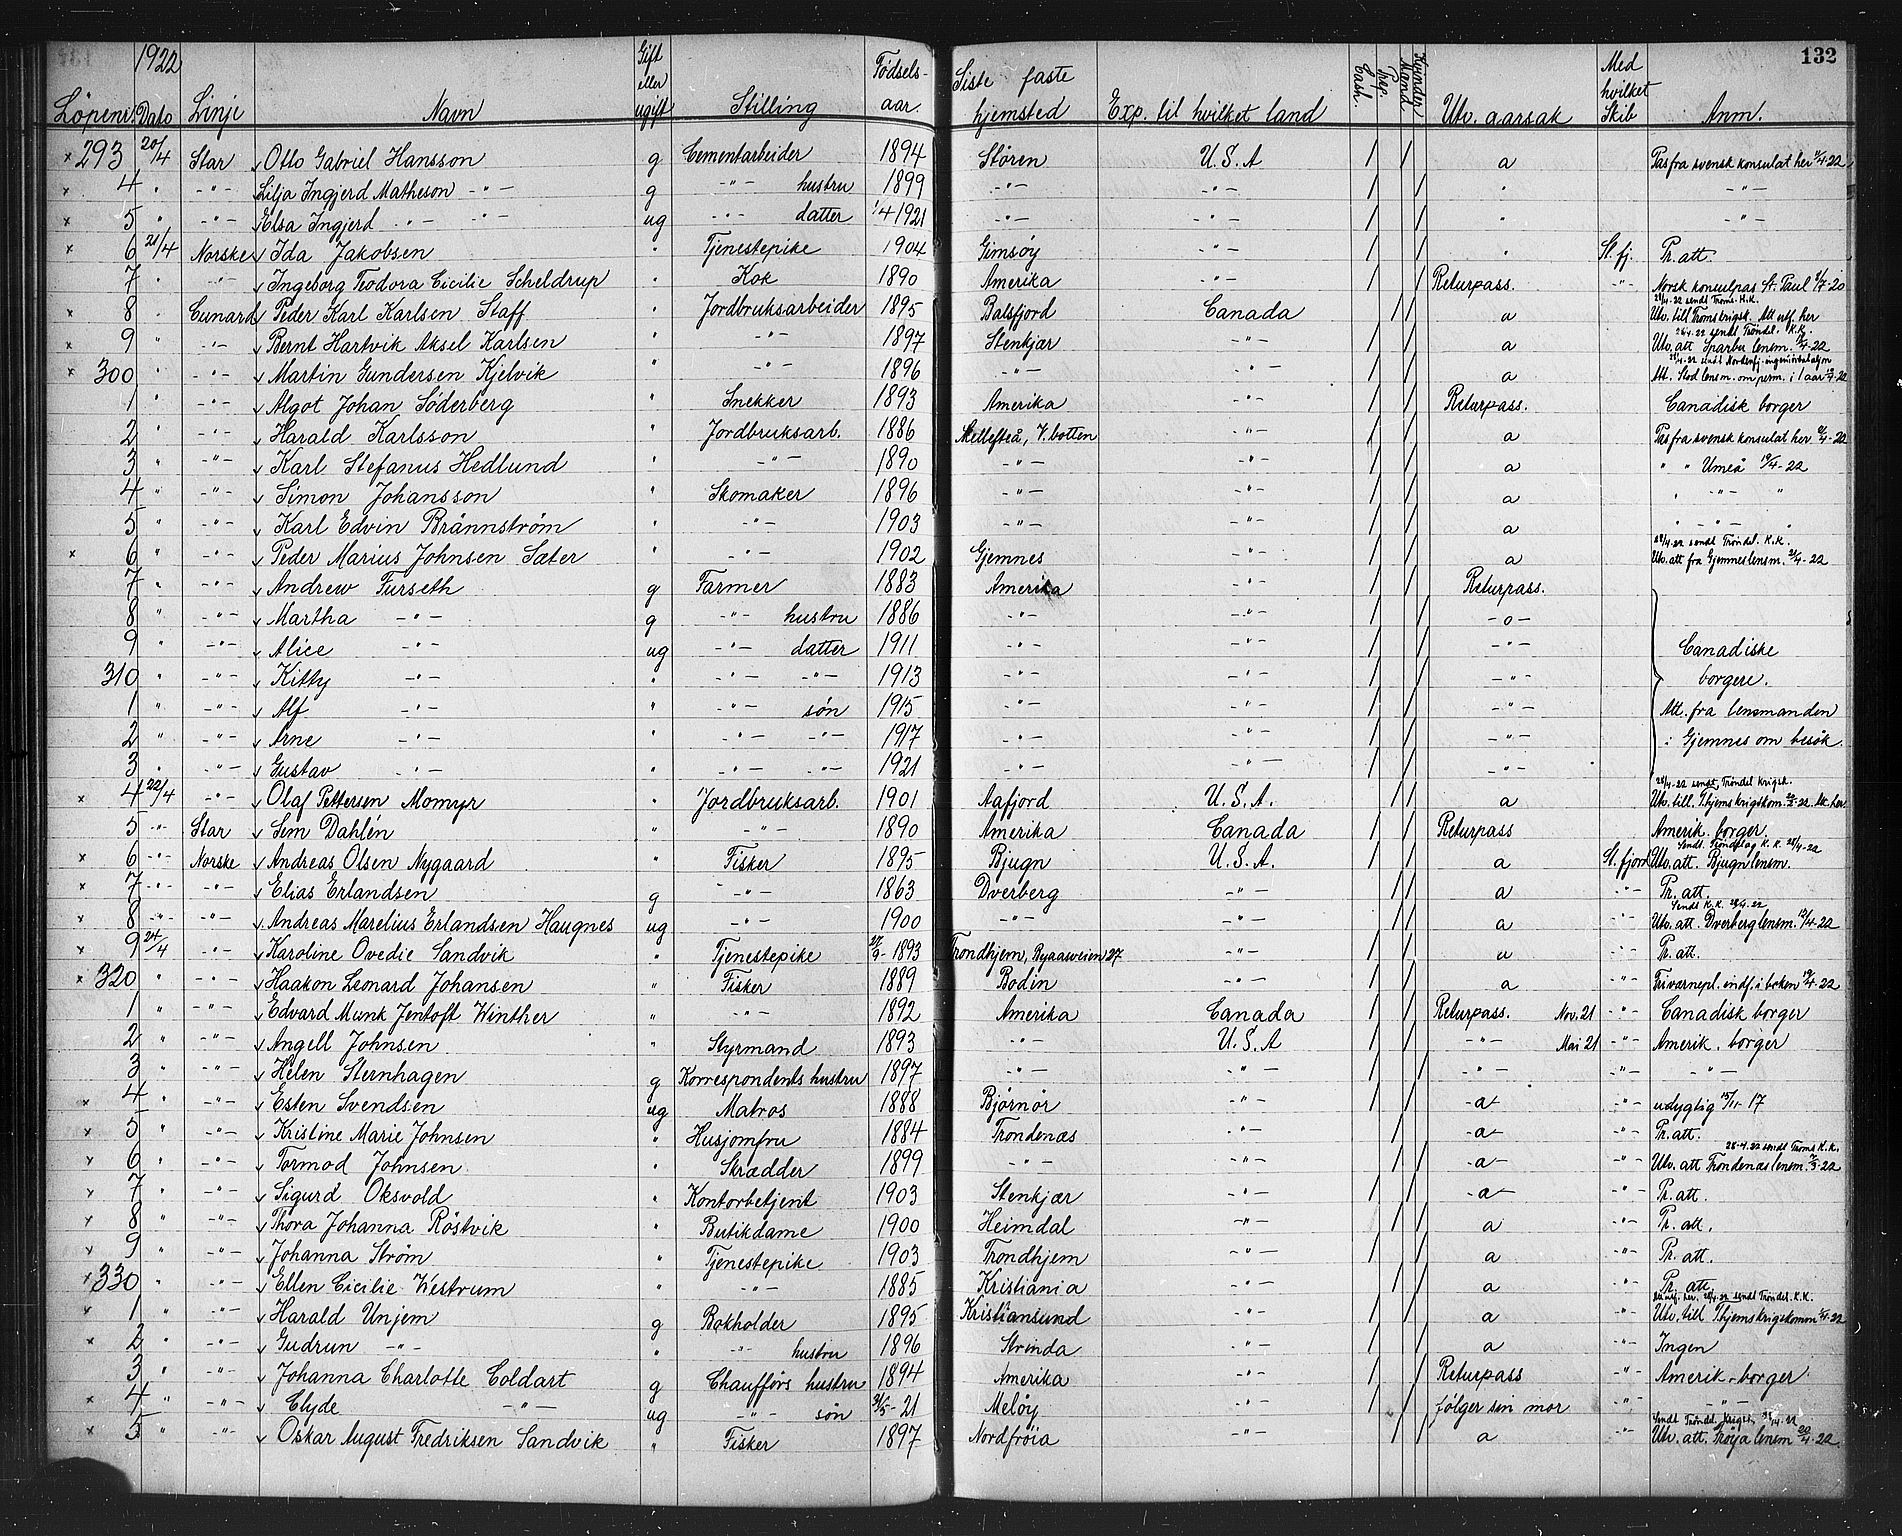 1922 132
Löpenr. Dato Linje Navn Gift eller ugift Stilling Fødsels-aar. Siste faste hjemsted Exp. til hvilket land Cash. Prp. Mænd Kvinder Utv. aarsak Med hvilket Skib Anm.
× 293 20/4 Star Otto Gabriel Hansson g Cementarbeider 1894 Støren U.S.A / / a Pas fra svensk konsulat her 11/4-22
× 4 " -"- Lilja Ingjerd Matheson -"- g -"- hustru 1899 -"- -"- / / " -"-
× 5 " -"- Elsa Ingjerd -"- -"- ug -"- datter 1/4 1921 -"- -"- / / " -"-
× 6 21/4 Norske Ida Jakobsen " Tjenestepike 1904 Gimsøy -"- / / " St. fj. Pr. att.
7 " -"- Ingeborg Teodora Cicilie Scheldrup " Kok 1890 Amerika -"- / / Returpass. -"- Norsk konsulpas St. Paul 1/7-20
× 8 " Cunard Peder Karl Karlsen Staff " Jordbruksarbeider 1895 Balsfjord Canada / / a 29/4-22 sendt Troms. K.K. Utv. till Troms krigsk. Att utf. her
× 9 " -"- Bernt Hartvik Aksel Karlsen " -"- 1897 Stenkjær -"- / / a 28-4-22 sendt Trøndel. K.K. Utv. att Sparbu lensm. -22
× 300 " -"- Martin Gundersen Kjelvik " -"- 1896 -"- -"- / / a Att. Stod lensm. om perm. i 1 aar -22
1 " -"- Algot Johan Söderberg " Snekker 1893 Amerika -"- / / Returpass. Canadisk borger
2 " -"- Harald Karlsson " Jordbruksarb. 1886 Skellefteå, V. botten -"- / / a Pas fra svensk konsulat her -22
3 " -"- Karl Stefanus Hedlund " -"- 1890 -"- -"- / / a " " Umeå 19/4-22
4 " -"- Simon Johansson " Skomaker 1896 -"- -"- / / a " -"- "
5 " -"- Karl Edvin Brännström " -"- 1903 -"- -"- / / a " -"- "
× 6 " -"- Peder Marius Johnsen Sæter " -"- 1902 Gjemnes -"- / / a 29/4-22 sendt Trøndel. K.K. Utv. att fra Gjemnes lensm. 21/4-22
7 " -"- Andrew Furseth g Farmer 1883 Amerika -"- / / Returpass.
8 " -"- Martha -"- g -"- hustru 1886 -"- -"- / / -"-
9 " -"- Alice -"- ug -"- datter 1911 -"- -"- / / -"- Canadiske
310 " -"- Kitty -"- " -"- -"- 1913 -"- -"- / / -"- borgere.
1 " -"- Alf -"- " -"- søn 1915 -"- -"- / / -"- Att. fra lensmanden
2 " -"- Arne -"- " -"- -"- 1917 -"- -"- / / -"- i Gjemnes om besøk.
3 " -"- Gustav -"- " -"- -"- 1921 -"- -"- / / -"-
× 4 22/4 -"- Olaf Pettersen Momyr " Jordbruksarb. 1901 Aafjord U.S.A. / / a 28/4-22 sendt Trøndel krigsk. Utv. till. Thjems krigskom. -22 Att. her
5 -"- Star Sem Dahlén " -"- 1890 Amerika Canada / / Returpass Amerik. borger.
× 6 -"- Norske Andreas Olsen Nygaard " Fisker 1895 Bjugn U.S.A. / / a St. fjord Sendt. Trøndelag K.K. 28/4-22 Utv. att. Bjugn lensm.
× 7 -"- -"- Elias Erlandsen g -"- 1863 Dverberg -"- / / a -"- Pr. att.
× 8 -"- -"- Andreas Marelius Erlandsen Haugnes ug -"- 1900 -"- -"- / / a -"- Sendt K.K. 28/4-22 Utv. att. Dverberg lensm. 12/4-22
× 9 24/4 -"- Karoline Ovedie Sandvik " Tjenestepike 27/9-1893 Trondhjem, Byaasveien 27 -"- / / a -"- Pr. att.
× 320 " -"- Haakon Leonard Johansen " Fisker 1889 Bodin -"- / / a -"- Frivernepl. indf. i boken 19/4-22
1 " -"- Edvard Munk Jentoft Winther " -"- 1892 Amerika Canada / / Returpass. Nov. 21 -"- Canadisk borger
2 " -"- Angell Johnsen " Styrmand 1893 -"- U.S.A / / -"- Mai 21 -"- Amerik. borger
3 " -"- Helen Sternhagen g Korrespondents hustru 1897 -"- -"- / / -"- -"- -"-
× 4 " -"- Esten Svendsen ug Matros 1888 Bjørnör -"- / / -a- -"- udygtig 15/11-17
× 5 " -"- Kristine Marie Johnsen " Husjomfru 1884 Trondenæs -"- / / -a- -"- Pr. att.
× 6 " -"- Tormod Johnsen " Skrædder 1899 -"- -"- / / -a- -"- 28-4-22 sendt Troms K.K. Utv. att Trondenæs lensm. 7/3-22
× 7 " -"- Sigurd Oksvold " Kontorbetjent 1903 Stenkjær -"- / / -a- -"- Pr. att.
× 8 " -"- Thora Johanna Röstvik " Butikdame 1900 Heimdal -"- / / a -"- Pr. att.
× 9 " -"- Johanna Strøm " Tjenestepike 1903 Trondhjem -"- / / a -"- Pr. att.
× 330 " -"- Ellen Cicilie Westrum " -"- 1885 Kristiania -"- / / a -"- Pr. att.
× 1 " -"- Harald Unjem g Bokholder 1895 Kristiansund -"- / / a -"- her. 28/4-22 sendt Trøndel. K.K. Utv. till Thjems krigskomm -22
× 2 " -"- Gudrun -"- " -"- hustru 1896 Strinda -"- / / a -"- Ingen
3 " -"- Johanna Charlotte Coldart g Chaufförs hustru 1894 Amerika -"- / / Returpass -"- Amerik. borger
× 4 " -"- Clyde -"- ug -"- søn 31/5-21 Meløy -"- / / følger sin mor -"- -"-
× 5 " -"- Oskar August Fredriksen Sandvik " Fisker 1897 Nordfröia -"- / / a -"- Sendt Trøndel. krigsk. /4-22 Utv. att. Frøya lensm 20/4-22.